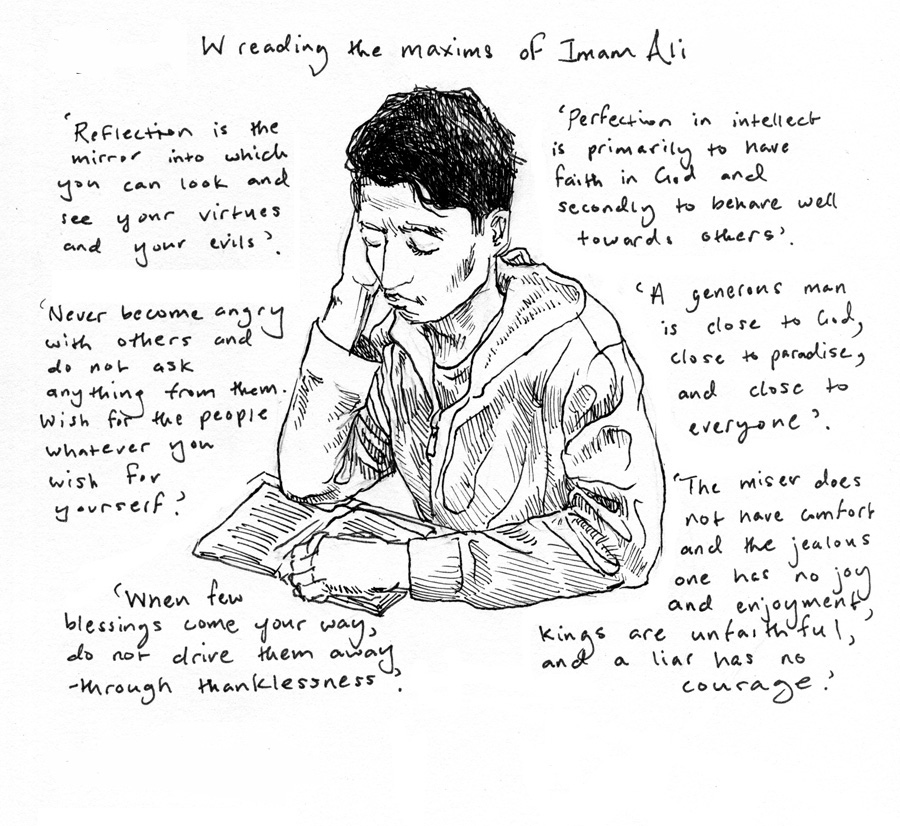 W reading the maxims of Imam Ali
'Reflection is the
mirror into which
you can look and
see your virtues
and your evils'.
'Never become angry
with others and
do not ask
anything from them.
Wish for the people
whatever you
wish for
yourself.'
'When few
blessings come your way,
do not drive them away
-through thanklessness'.
'Perfection in intellect
is primarily to have
faith in God and
secondly to behave well
towards others'.
'A generous man
is close to God,
close to paradise,
and close to
everyone'.
'The miser does
not have comfort
and the jealous
one has no joy
and enjoyment,
kings are unfaithful,
and a liar has no
courage.'